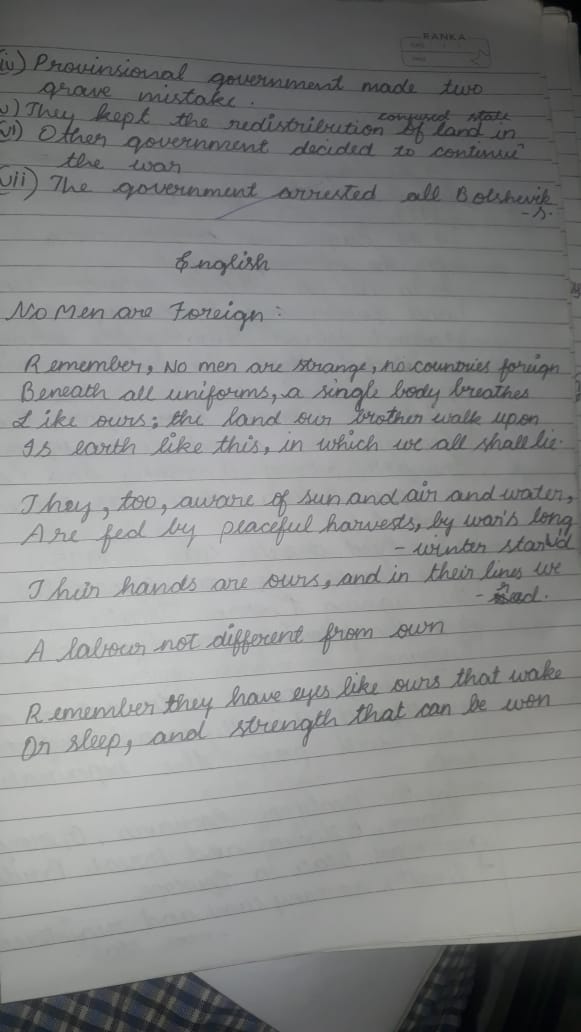 RANKA
DATE / /
PAGE
iv) Provinsional government made two
grave mistake.
v) They kept the redistribution of land in
confused state
vi) Other government decided to continue
the war
vii) The government arrested all Bolshevik
-s.
English
No Men are Foreign :
Remember, No men are strange, no countries foreign
Beneath all uniforms, a single body breathes
Like ours; the land our brother walk upon
Is earth like this, in which we all shall lie.
They, too, aware of sun and air and water,
Are fed by peaceful harvests, by war's long
- winter starv'd
Their hands are ours, and in their lines we
- read.
A labour not different from own
Remember they have eyes like ours that wake
Or sleep, and strength that can be won